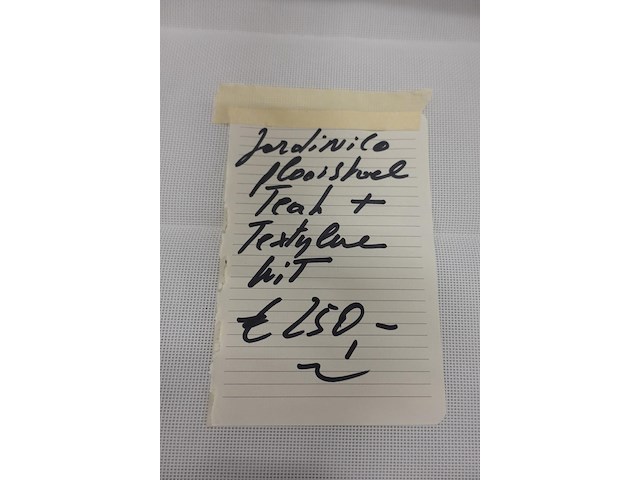 Jardinico
plooistoel
Teak +
Textylene
WiT
€ 250,-